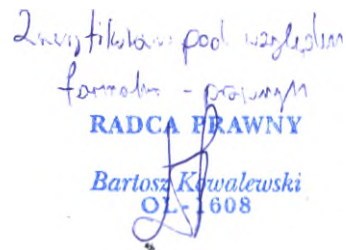 Zweryfikowano pod względem
formalno - prawnym
RADCA PRAWNY
Bartosz Kowalewski
OL-1608